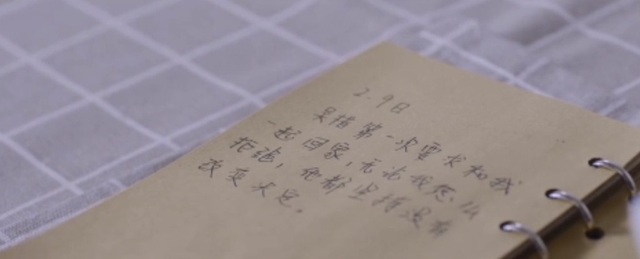 2.9日
吴指第一次要求和我
一起回家,无论我怎么
拒绝,他都坚持没有
改变决定。